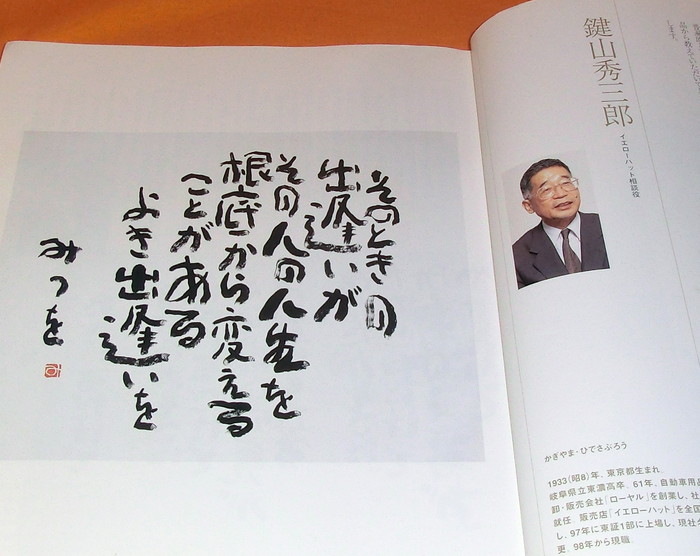 そのときの
出逢いが
その人の人生を
根底から変える
ことがある
よき出逢いを
みつを
鍵山秀三郎
イエローハット相談役
かぎやま・ひでさぶろう
1933(昭8)年、東京都生まれ。
岐阜県立東濃高卒。61年、自動車用品
卸・販売会社「ローヤル」を創業し、社
就任。販売店「イエローハット」を全国
し、97年に東証1部に上場し、現社
更。98年から現職。